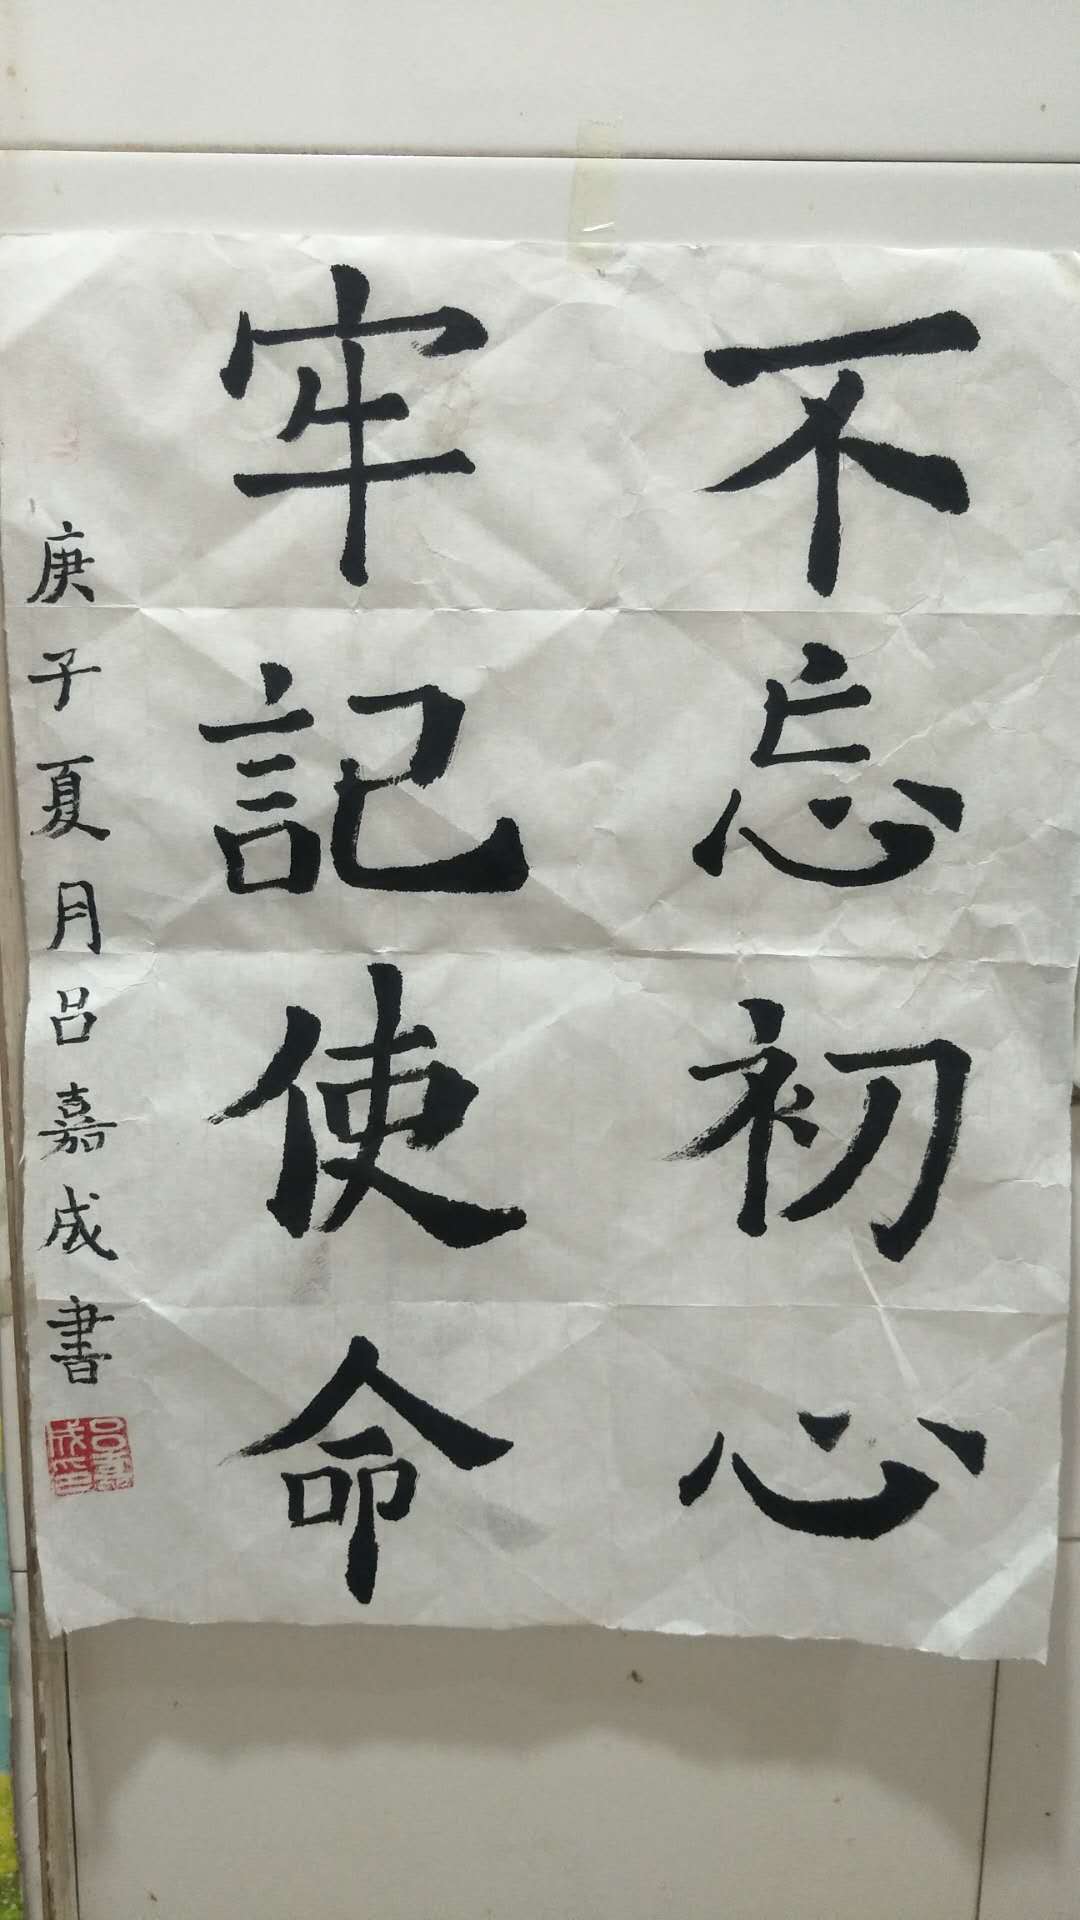 不忘初心
牢記使命
庚子夏月吕嘉成書
吕嘉成印